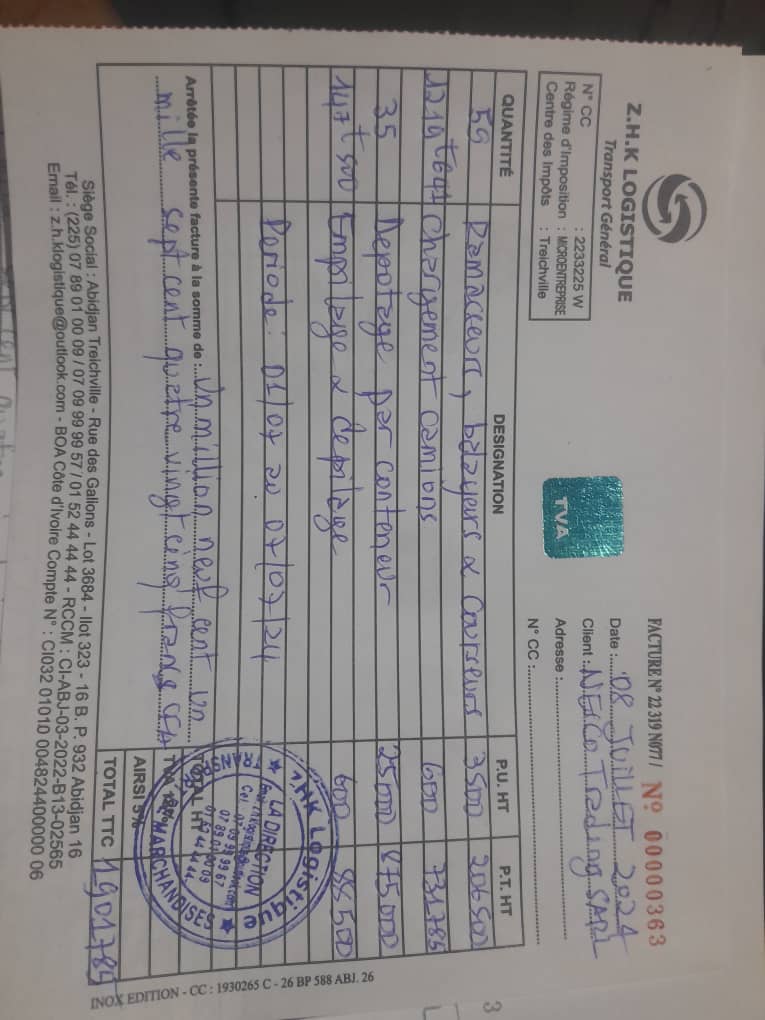 Z.H.K LOGISTIQUE
Transport Général
N° CC : 2233225 W
Régime d'Imposition : MICROENTREPRISE
Centre des Impôts : Treichville
TVA
FACTURE N° 22 319 N077 / N° 00000363
Date : 08 Juillet 2024
Client : NELCO Trading SARL
Adresse :
N° CC :
QUANTITÉ DESIGNATION P.U. HT P.T. HT
59 Ramasseurs, balayeurs & Coursiers 3500 206500
1219t641 Chargement camions 600 731785
35 Depotage par conteneur 25000 875000
147t500 Empilage & Depilage 600 88500
Periode : 01/07 au 07/07/24
Arrêtée la présente facture à la somme de : Un million neuf cent un
mille sept cent quatre vingt cinq francs CFA
TOTAL HT
TVA 18%
AIRSI 5%
TOTAL TTC 1901785
ZHK Logistique
LA DIRECTION
MARCHANDISES
Siège Social : Abidjan Treichville - Rue des Gallions - Lot 3684 - Ilot 323 - 16 B. P. 932 Abidjan 16
Tél. : (225) 07 89 01 00 09 / 07 09 99 99 57 / 01 52 44 44 44 - RCCM : CI-ABJ-03-2022-B13-02565
Email : z.h.klogistique@outlook.com - BOA Côte d'Ivoire Compte N° : CI032 01010 004824400000 06
INOX EDITION - CC : 1930265 C - 26 BP 588 ABJ. 26